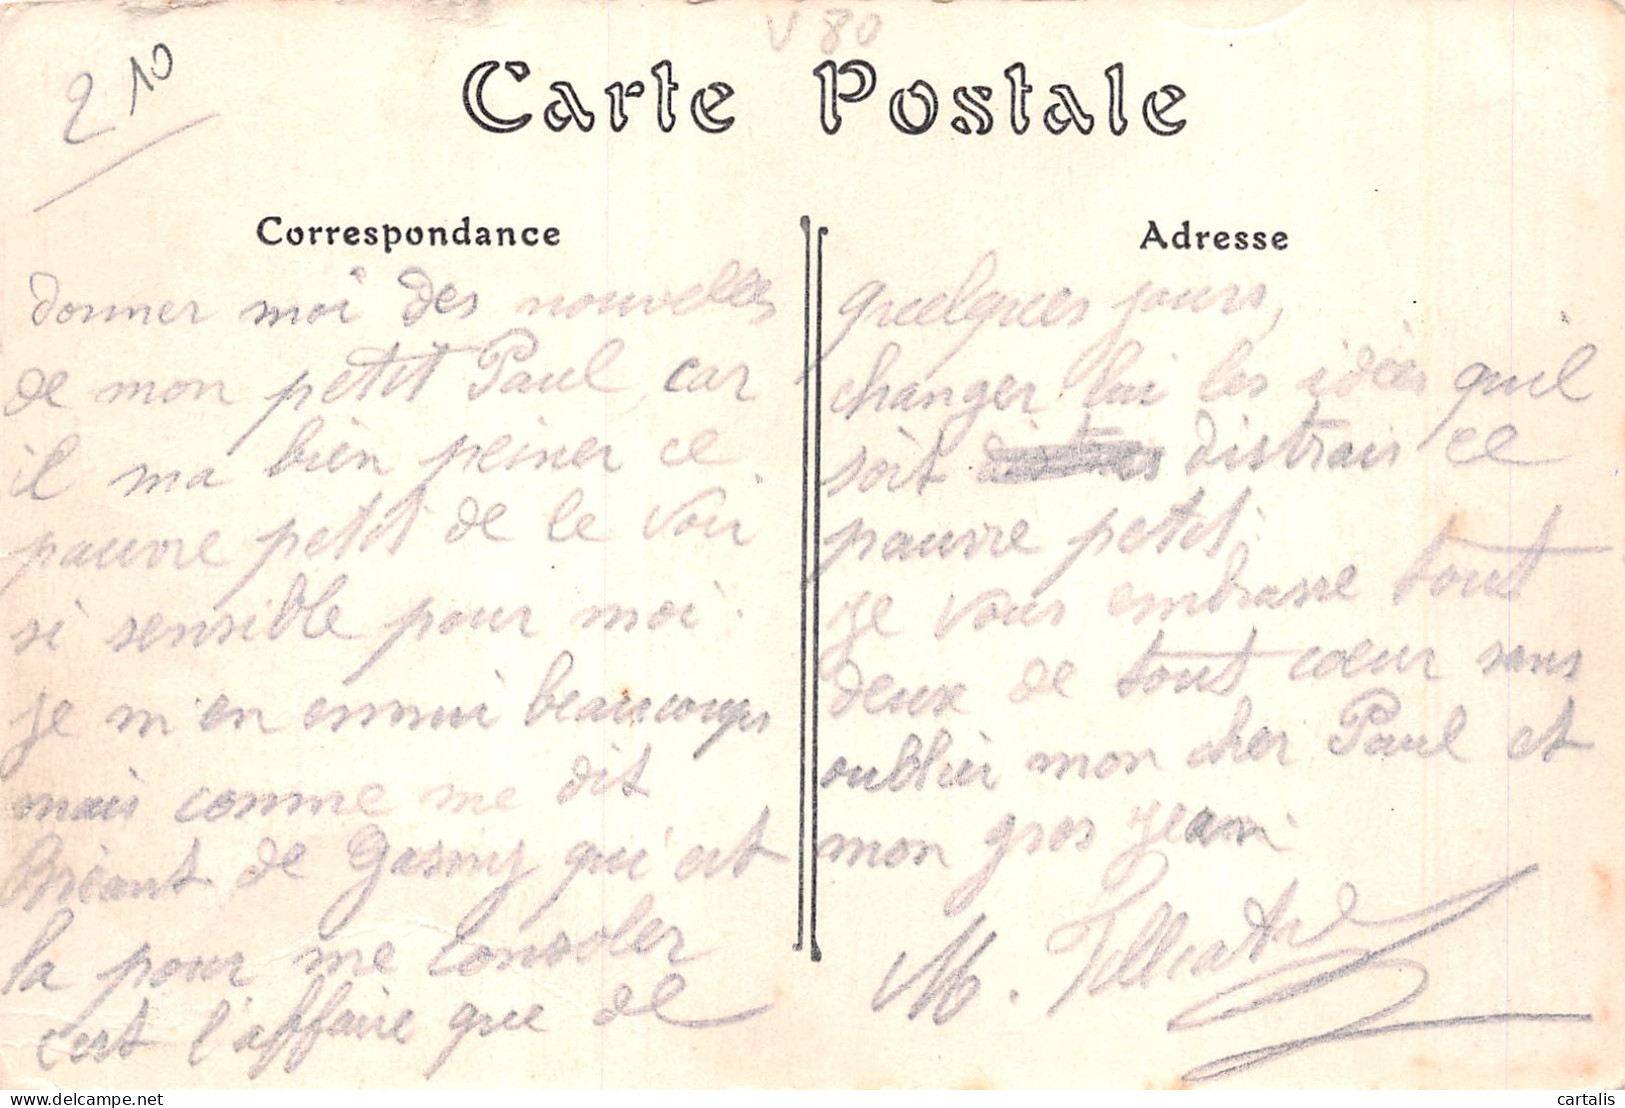 2 10
V 80
Carte Postale
Correspondance
donner moi des nouvelles
de mon petit Paul, car
il ma bien peiner ce
pauvre petit de le voir
si sensible pour moi.
je m'en ennui beaucoups
mais comme me dit
Briant de Gasny qui est
la pour me consoler
c'est l'affaire que de
Adresse
quelques jours,
changer lui les idées quil
soit distrais ce
pauvre petit.
je vous embrasse tout
deux de tout cœur sans
oublier mon cher Paul et
mon gros jean.
M.
delcampe.net
cartalis